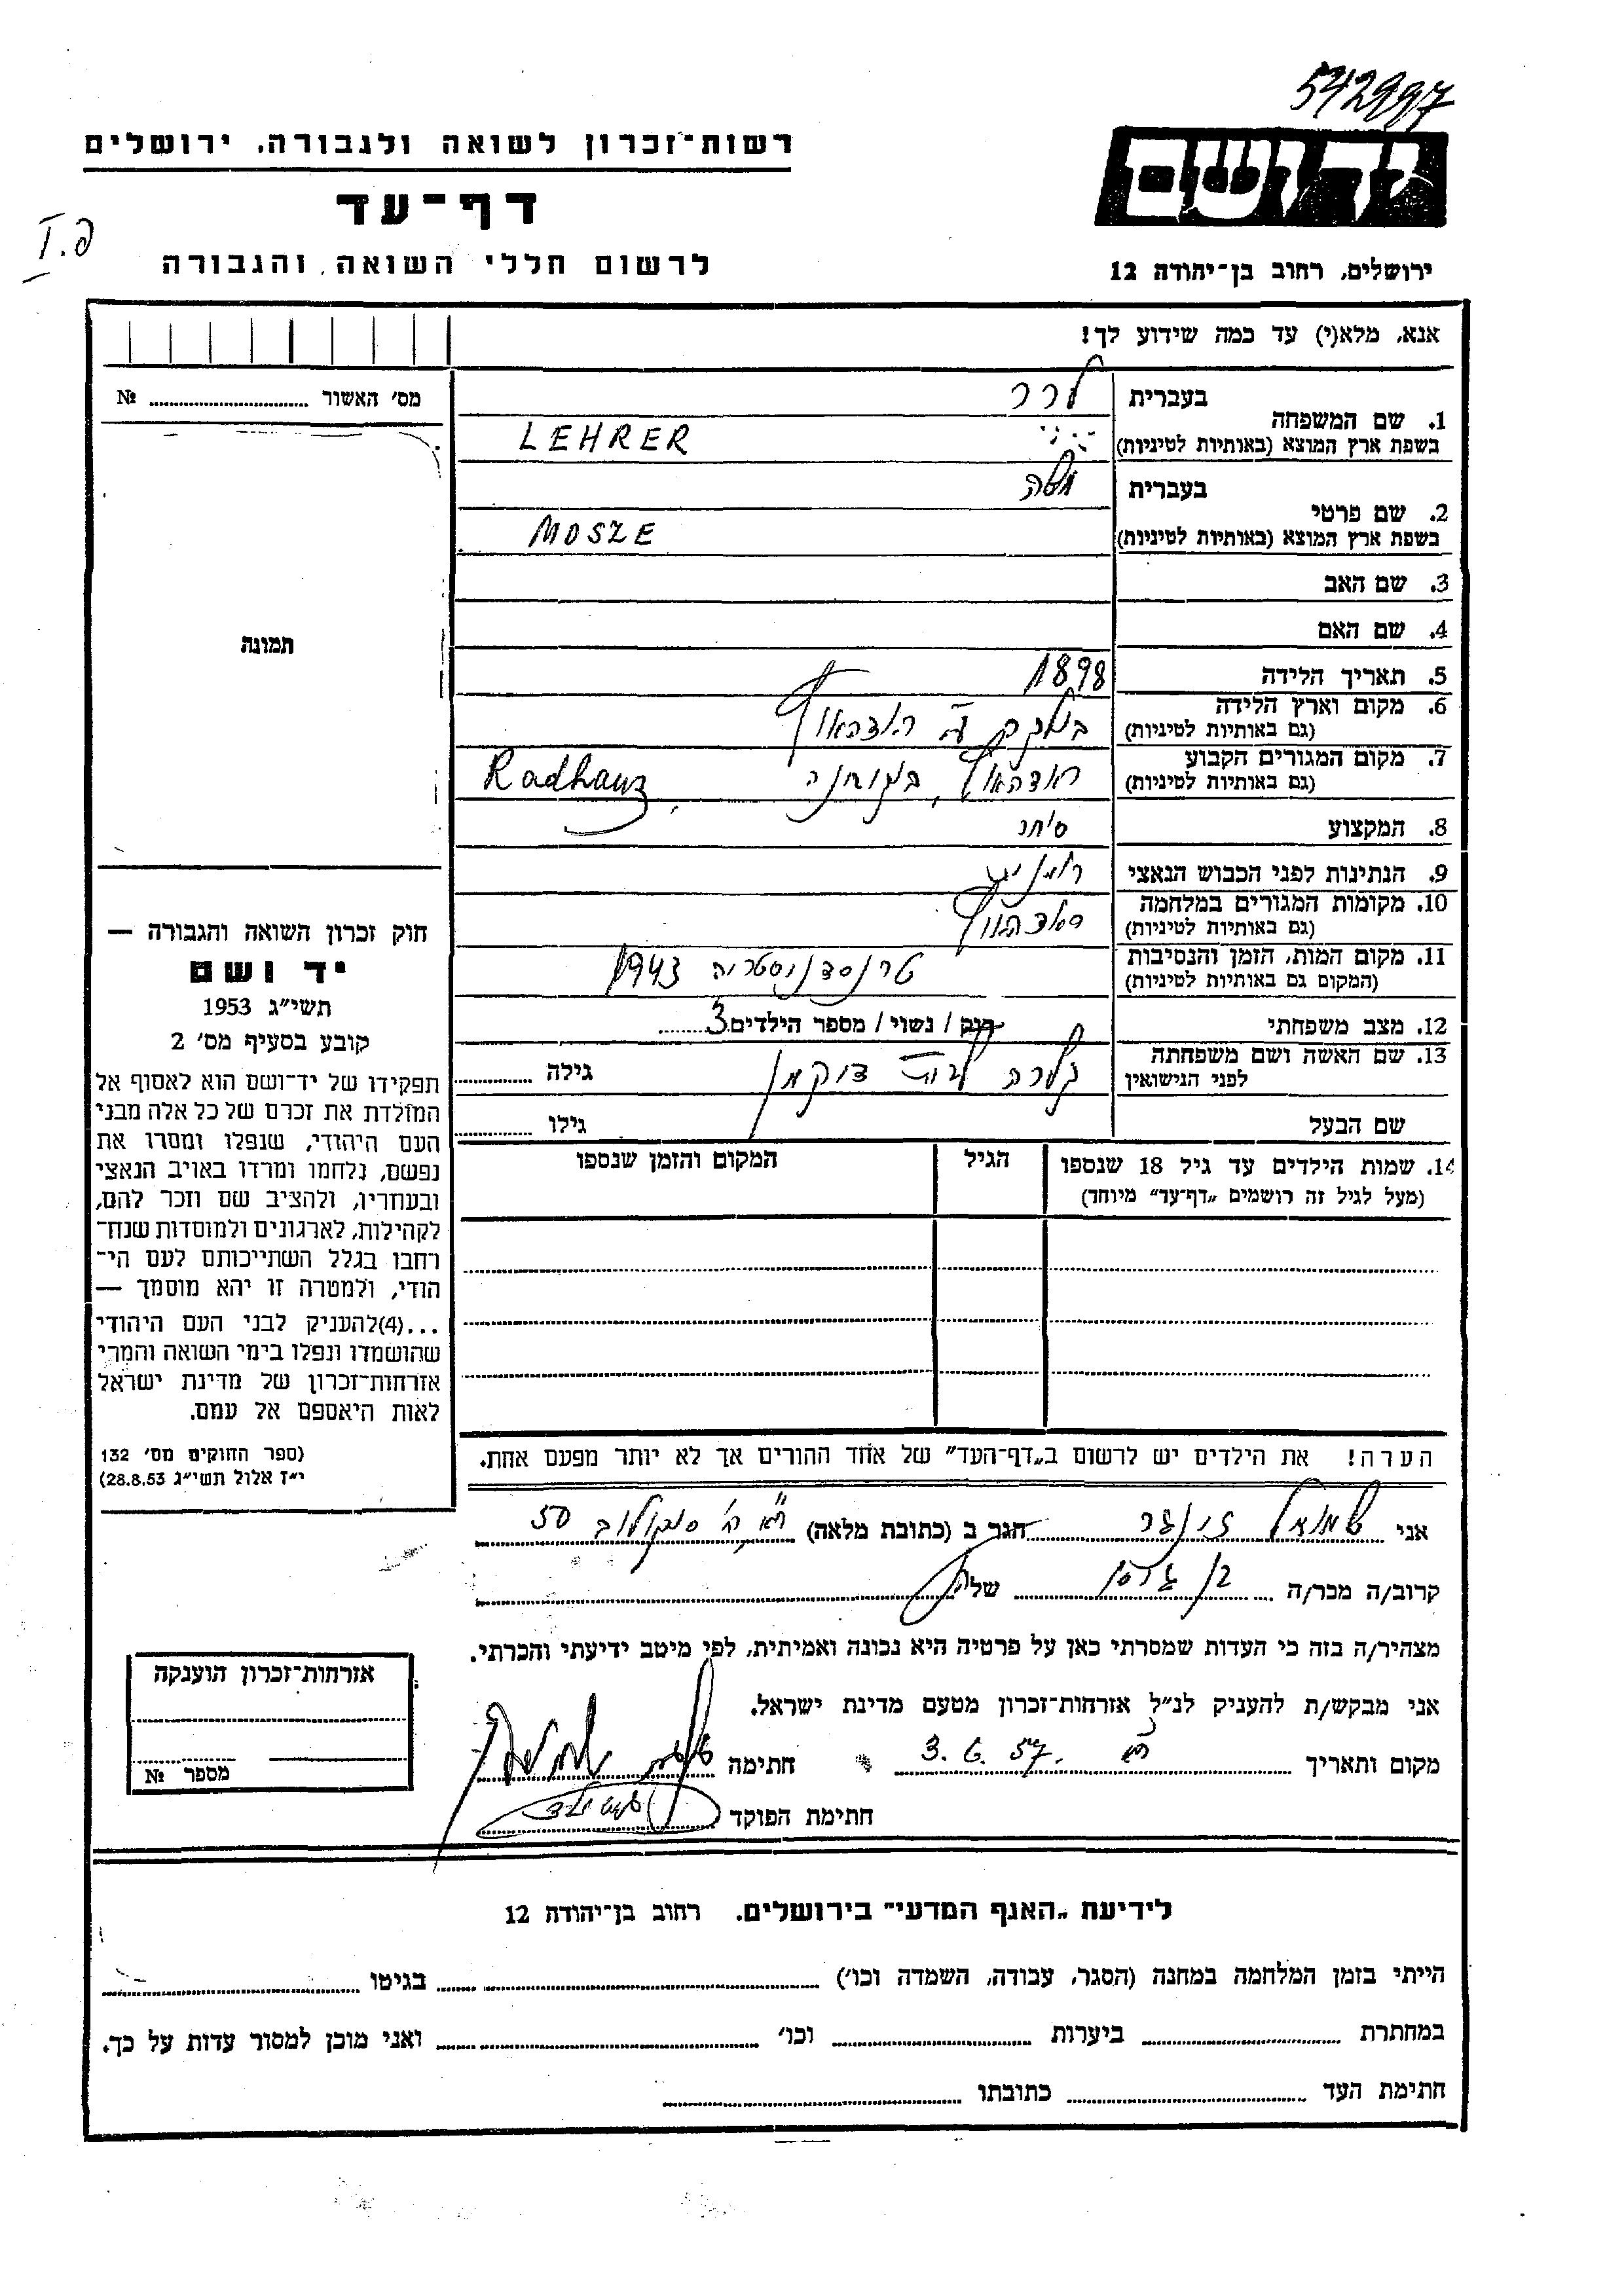 542997
רשות-זכרון לשואה ולגבורה, ירושלים
יד ושם
דף-עד
I.פ
לרשום חללי השואה והגבורה
ירושלים, רחוב בן-יהודה 12
אנא, מלא(י) עד כמה שידוע לך!
מס' האשור № 
1. שם המשפחה
בעברית לרר
בשפת ארץ המוצא (באותיות לטיניות) LEHRER
2. שם פרטי
בעברית משה
בשפת ארץ המוצא (באותיות לטיניות) MOSZE
3. שם האב
4. שם האם
תמונה
5. תאריך הלידה 1898
6. מקום וארץ הלידה
(גם באותיות לטיניות)
7. מקום המגורים הקבוע
(גם באותיות לטיניות) ראדהאוץ, בוקובינה, Radhauz
8. המקצוע סוחר
9. הנתינות לפני הכבוש הנאצי רומנית
10. מקומות המגורים במלחמה
(גם באותיות לטיניות) ראדהאוץ
11. מקום המות, הזמן והנסיבות
(המקום גם באותיות לטיניות) טרנסדניסטריה 1943
12. מצב משפחתי רווק / נשוי / מספר הילדים 3
13. שם האשה ושם משפחתה
לפני הנישואין קלרה לבית דוקמן גילה
שם הבעל גילו
14. שמות הילדים עד גיל 18 שנספו
(מעל לגיל זה רושמים „דף-עד" מיוחד)
הגיל
המקום והזמן שנספו
חוק זכרון השואה והגבורה —
יד ושם
תשי"ג 1953
קובע בסעיף מס' 2
תפקידו של יד-ושם הוא לאסוף אל
המולדת את זכרם של כל אלה מבני
העם היהודי, שנפלו ומסרו את
נפשם, נלחמו ומרדו באויב הנאצי
ובעוזריו, ולהציב שם וזכר להם,
לקהילות, לארגונים ולמוסדות שנח-
רבו בגלל השתייכותם לעם הי-
הודי, ולמטרה זו יהא מוסמך —
...(4)להעניק לבני העם היהודי
שהושמדו ונפלו בימי השואה והמרי
אזרחות-זכרון של מדינת ישראל
לאות היאספם אל עמם.
(ספר החוקים מס' 132
י"ז אלול תשי"ג 28.8.53)
הערה! את הילדים יש לרשום ב„דף-העד" של אחד ההורים אך לא יותר מפעם אחת.
אני שמואל זינגר הגר ב (כתובת מלאה) ת"א רח' סוקולוב 50
קרוב/ה מכר/ה בן גיסו של/ה
מצהיר/ה בזה כי העדות שמסרתי כאן על פרטיה היא נכונה ואמיתית, לפי מיטב ידיעתי והכרתי.
אני מבקש/ת להעניק לנ"ל אזרחות-זכרון מטעם מדינת ישראל.
מקום ותאריך ת"א 3.6.57. חתימה
חתימת הפוקד
אזרחות-זכרון הוענקה
מספר №
לידיעת „האגף המדעי" בירושלים, רחוב בן-יהודה 12
הייתי בזמן המלחמה במחנה (הסגר, עבודה, השמדה וכו') בגיטו
במחתרת ביערות וכו' ואני מוכן למסור עדות על כך.
חתימת העד כתובתו